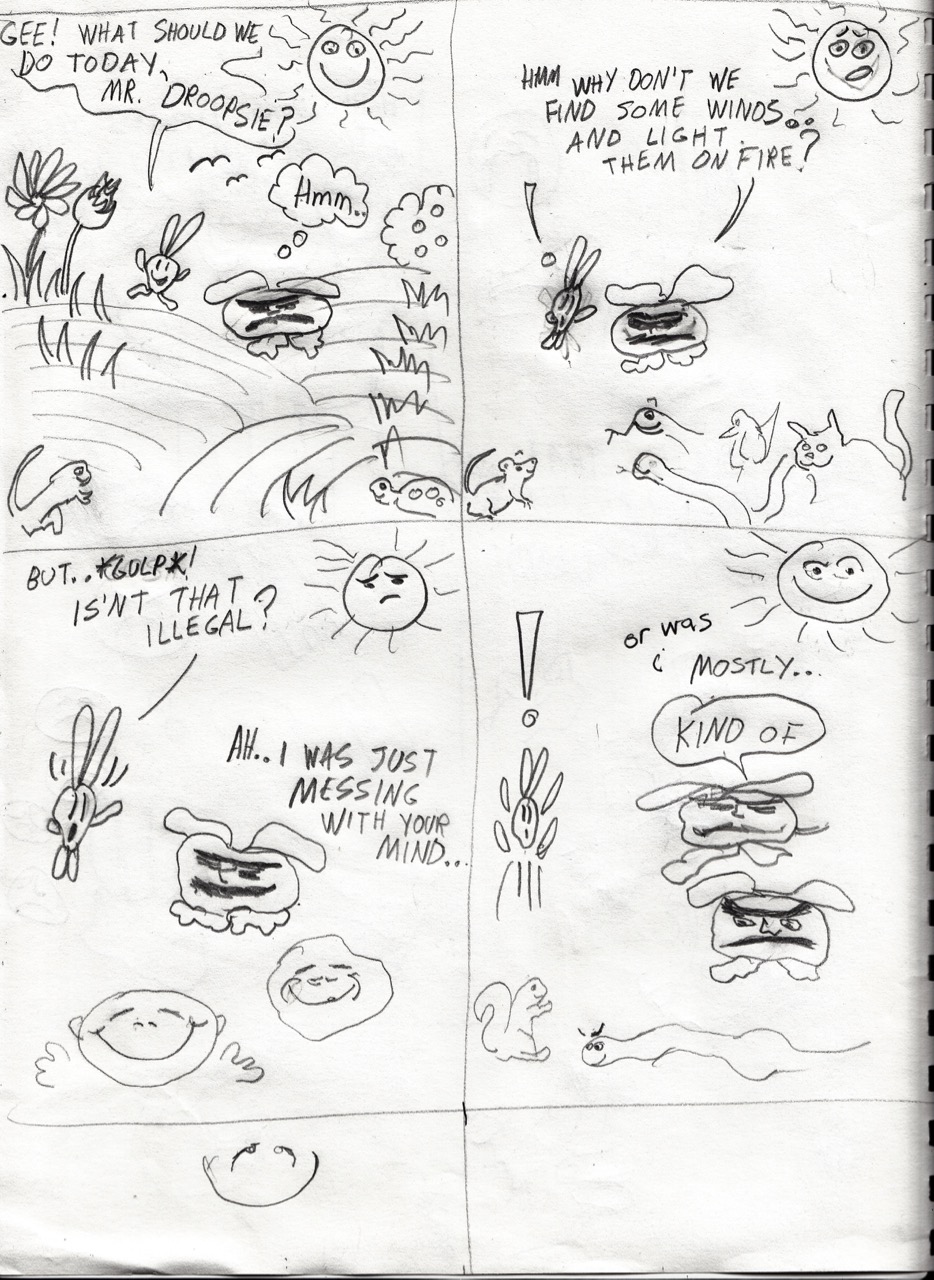 GEE! WHAT SHOULD WE
DO TODAY,
MR. DROOPSIE?
Hmm..
HMM WHY DON'T WE
FIND SOME WINOS..
AND LIGHT.
THEM ON FIRE?
BUT..*GULP*!
IS'NT THAT
ILLEGAL?
AH.. I WAS JUST
MESSING
WITH YOUR
MIND...
!
or was
i
MOSTLY..
KIND OF